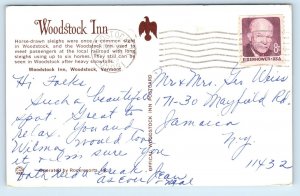 Woodstock Inn
Horse-drawn sleighs were once a common sight
in Woodstock, and the Woodstock Inn used to
meet passengers at the local railroad with long
sleighs using up to six horses. They still can be
seen in Woodstock after heavy snowfalls.
Woodstock Inn, Woodstock, Vermont
EISENHOWER·USA
8c
OFFICIAL WOODSTOCK INN POSTCARD
Hi Folks,
Such a beautiful
spot. Great to
relax. You and
Wilma would love
it & I'm sure you
both need a break
As ever, Jean
Mal
Mr & Mrs. Weiss
171-30 Mayfield Rd.
Jamaica
N.Y.
11432
Operated by Rockresorts